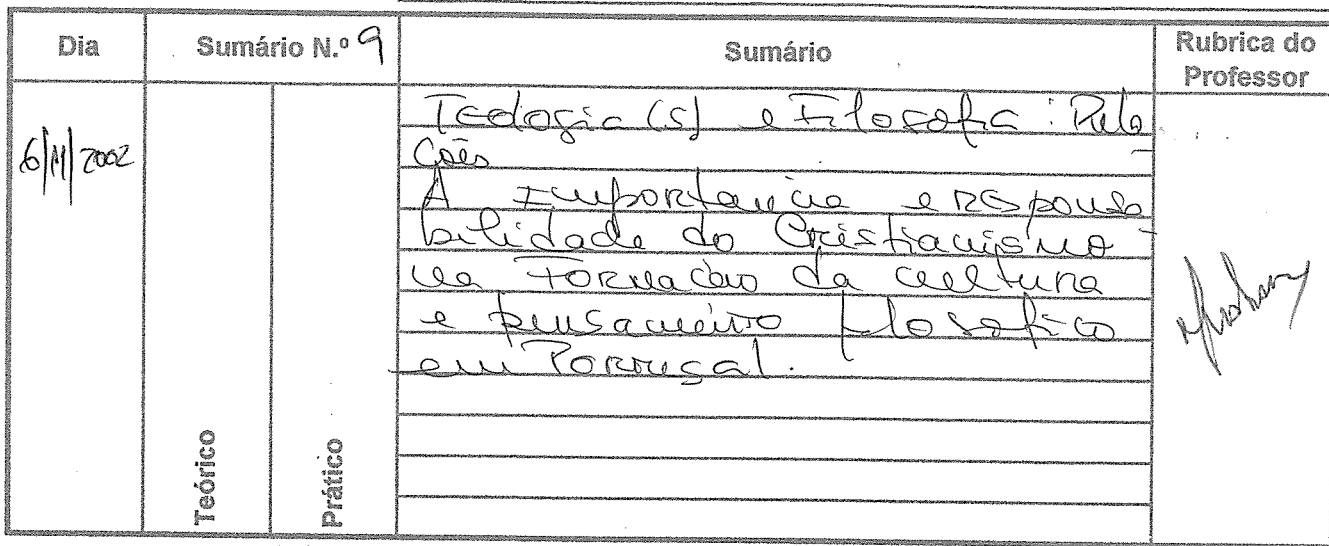 Dia Sumário N.º 9 Sumário Rubrica do Professor
6/11/2002
Teologia (s) e Filosofia: Rela-
ções
A Importância e responsa-
bilidade do Cristianismo
na Formação da cultura
e pensamento filosofico
em Portugal.
Teórico
Prático